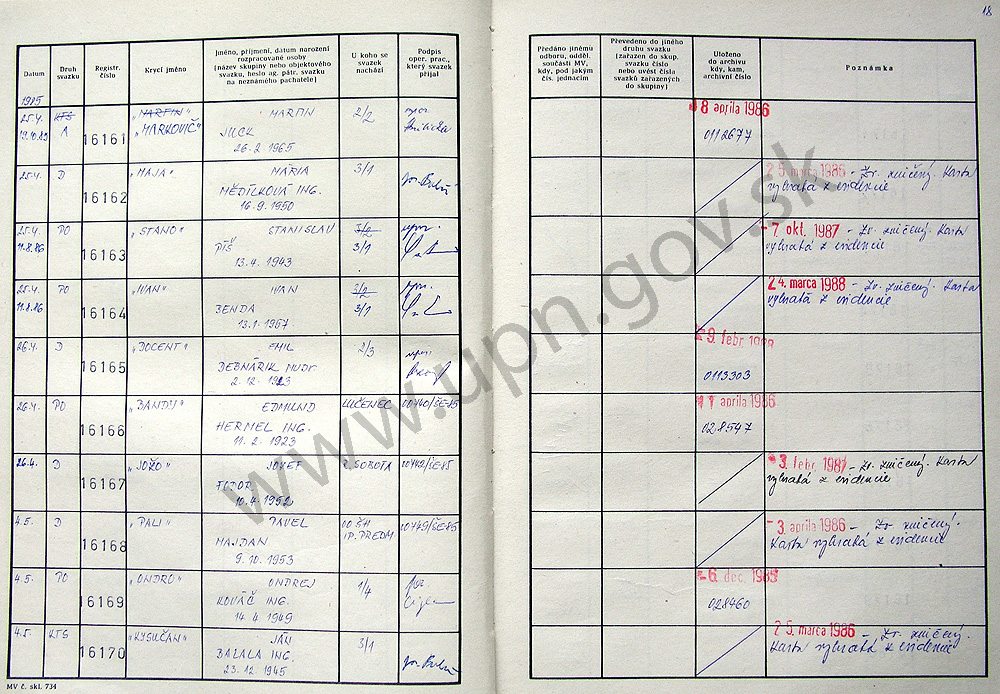 18
Datum
Druh svazku
Registr. číslo
Krycí jméno
Jméno, příjmení, datum narození
rozpracované osoby
(název skupiny nebo objektového
svazku, heslo ag. pátr. svazku
na neznámého pachatele)
U koho se
svazek
nachází
Podpis
oper. prac.,
který svazek
přijal
Předáno jinému
odboru, odděl.
součásti MV,
kdy, pod jakým
čís. jednacím
Převedeno do jiného
druhu svazku
(zařazen do skup.
svazku číslo
nebo uvést čísla
svazků zařazených
do skupiny)
Uloženo
do archivu
kdy, kam,
archivní číslo
Poznámka
1985
25.4. KTS 16161 "MARTIN" MARTIN 2/2 npor.
19.10.89 A "MARKOVIČ" JUCK
26.2.1965
8 apríla 1986
0112677
25.4. D 16162 "MAJA" MÁRIA 3/1
MEDÍLKOVÁ ING.
16.9.1950
25. marca 1986 - Zv. zničený. Karta
vybratá z evidencie
25.4. PO 16163 "STANO" STANISLAV 3/2 npor.
11.8.86 PÍŠ 3/1
13.4.1943
-7 okt. 1987 - Zv. zničený. Karta
vybratá z evidencie
25.4. PO 16164 "IVAN" IVAN 3/2 npor.
11.8.86 BENDA 3/1
13.1.1957
24. marca 1988 - Zv. zničený. Karta
vybratá z evidencie
26.4. D 16165 "DOCENT" EMIL 2/3 npor.
BEBNÁRIK MUDr
2.12.1923
febr.
0113303
26.4. PO 16166 "BANDY" EDMUND LUČENEC 00440/ŠE-85
HERMEL ING.
11.2.1923
11 apríla 1986
028547
26.4. D 16167 "JOŽO" JOZEF R. SOBOTA 00442/ŠE-85
FODOR
10.4.1952
-3. febr. 1987 - Zv. zničený. Karta
vybratá z evidencie
4.5. D 16168 "PALI" PAVEL 00449/ŠE-85
MAJDAN IP. PREDM
9.10.1953
-3. apríla 1986 - Zv. zničený.
Karta vybratá z evidencie
4.5. PO 16169 "ONDRO" ONDREJ 1/4
KOVÁČ ING.
14.4.1949
-6. dec. 1985
028460
4.5. KTS 16170 "KYSUČAN" JÁN 3/1
BALALA ING.
23.12.1945
25. marca 1986 - Zv. zničený.
Karta vybratá z evidencie
MV č. skl. 734
www.upn.gov.sk